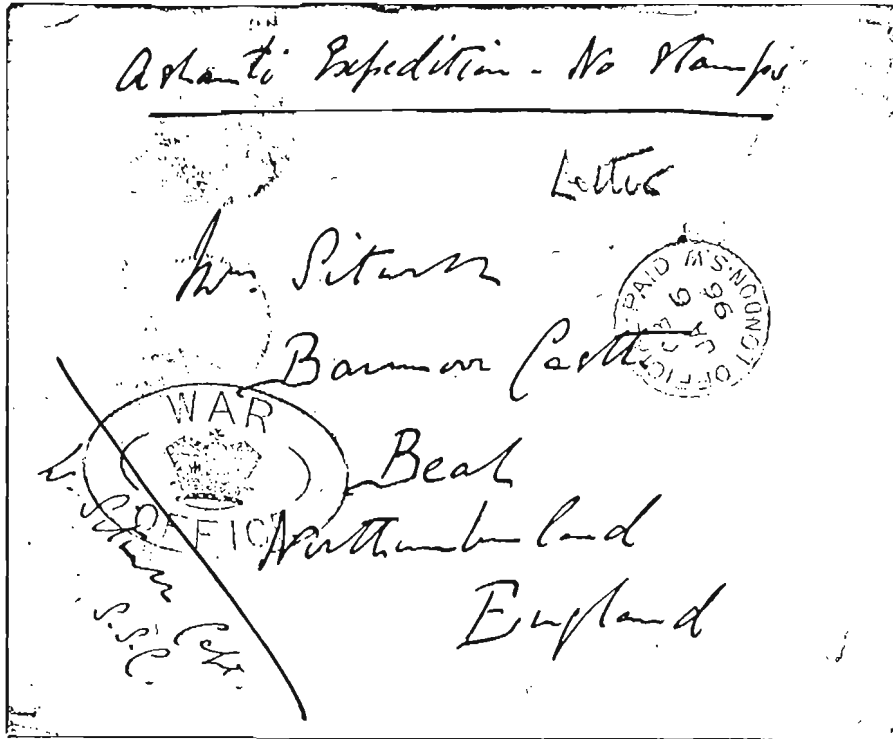 Ashanti Expedition - No Stamps
Letter
Mrs. Sitwell
Barmoor Castle
Beal
Northumberland
England
WAR
OFFICE
OFFICIAL PAID
JA 9
96
Capt.
S.S.C.